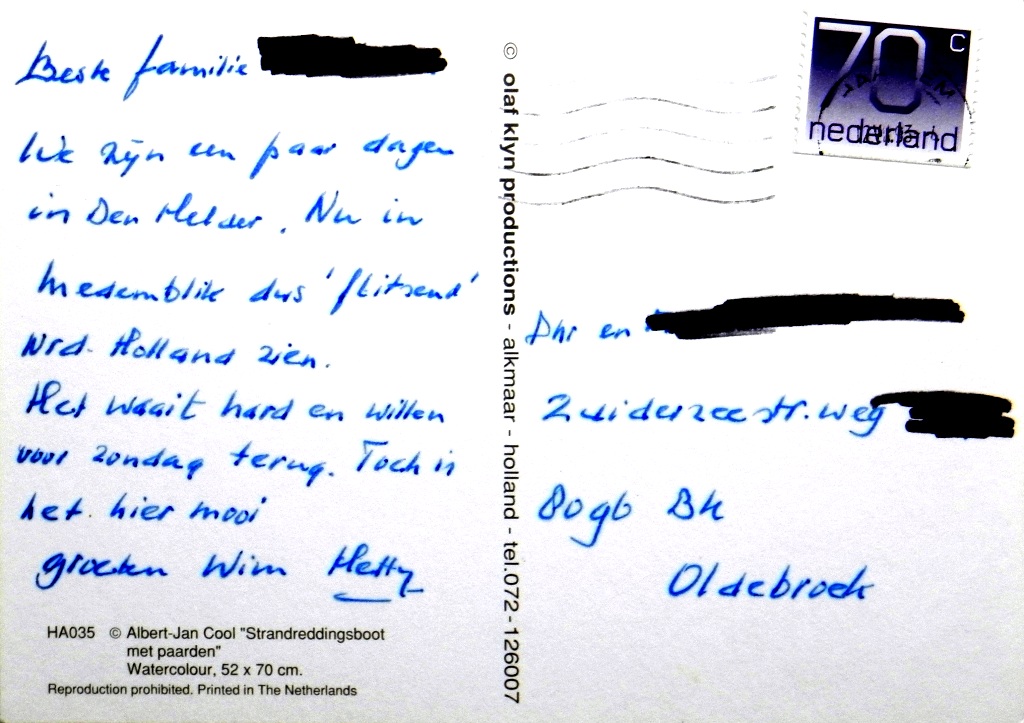 Beste familie
We zijn een paar dagen
in Den Helder. Nu in
Medemblik dus 'flitsend'
Nrd-Holland zien.
Het waait hard en willen
voor zondag terug. Toch is
het hier mooi
groeten Wim Hetty
HA035 © Albert-Jan Cool "Strandreddingsboot
met paarden"
Watercolour, 52 x 70 cm.
Reproduction prohibited. Printed in The Netherlands
© olaf klyn productions - alkmaar - holland - tel.072 - 126007
70 c
nederland
Dhr en
Zuiderzeestr.weg
8096 BK
Oldebroek